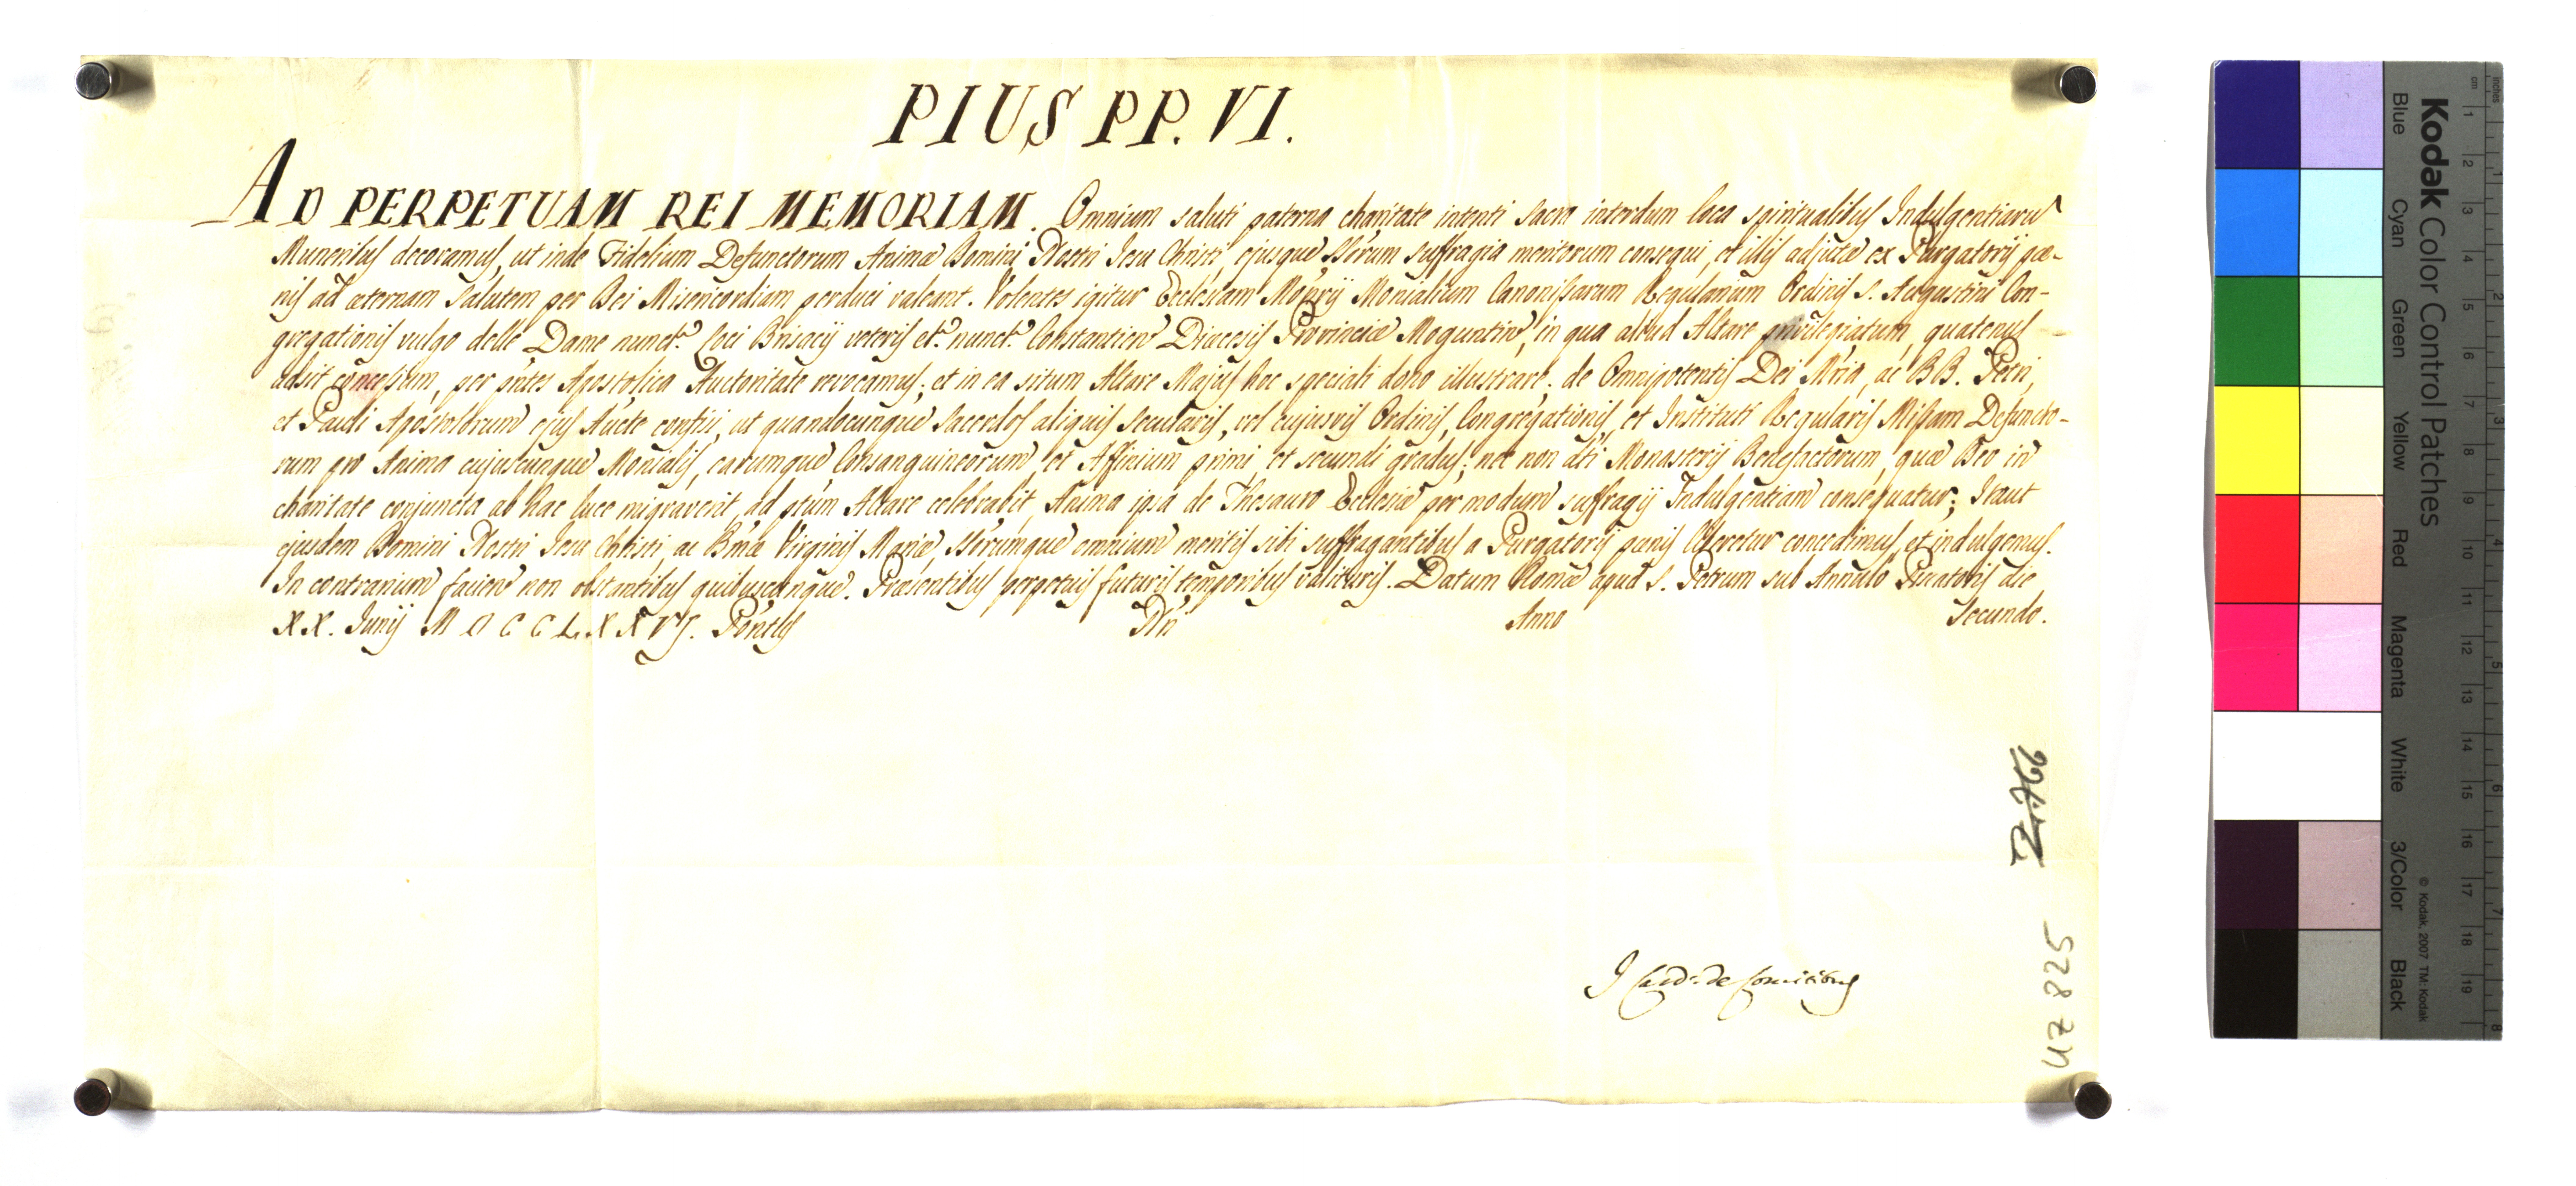 PIUS PP. VI.
AD PERPETUAM REI MEMORIAM. Omnium saluti paterna charitate intenti sacra interdum loca spiritualibus Indulgentiaru
Muneribus decoramus, ut inde Fidelium Defunctorum Animæ Domini Nostri Jesu Christi, ejusque SSorum suffragia meritorum consequi, et illis adjutæ ex Purgatorij pæ-
nis ad æternam salutem per Dei Misericordiam perduci valeant. Volentes igitur Ecclesiam Monrij Monialium Canonissarum Regularium Ordinis S. Augustini Con-
gregationis vulgo delle Dame nunct. Loci Brisacij veteris et. nunct. Constantien Diæcesis Provinciæ Moguntin, in qua aliud Altare privilegiatum, quatenus
adsit concessum, per pntes Apostolica Auctoritate revocamus; et in ea situm Altare Majus hoc speciali dono illustrare. de Omnipotentis Dei Mria, ac BB. Petri,
et Pauli Apostolorum ejus Aucte confisi, ut quandocunque Sacerdos aliquis secularis, vel cujusvis Ordinis, Congregationis, et Instituti Regularis Missam Defuncto-
rum pro Anima cujuscunque Monialis, earumque Consanguineorum, et Affinium primi, et secundi gradus; nec non dti Monasterij Benefactorum, quæ Deo in
charitate conjuncta ab hac luce migraverit, ad ptum Altare celebrabit, Anima ipsa de Thesauro Ecclesiæ per modum suffragij Indulgentiam consequatur; Itaut
ejusdem Domini Nostri Jesu Christi, ac Bmæ Virginis Mariæ, SSorumque omnium meritis sibi suffragantibus a Purgatorij pænis liberetur concedimus, et indulgemus.
In contrarium facien non obstantibus quibuscunque. Præsentibus perpetuis futuris temporibus valituris. Datum Romæ apud S. Petrum sub Annulo Piscatoris die
XX. Junij MDCCLXXVJ. Pontus Nri Anno Secundo.
J Card. de Comitibus
5287U
Kodak Color Control Patches
Blue Cyan Green Yellow Red Magenta White 3/Color Black
© Kodak, 2007 TM: Kodak
inches 1 2 3 4 5 6 7 8
cm 1 2 3 4 5 6 7 8 9 10 11 12 13 14 15 16 17 18 19